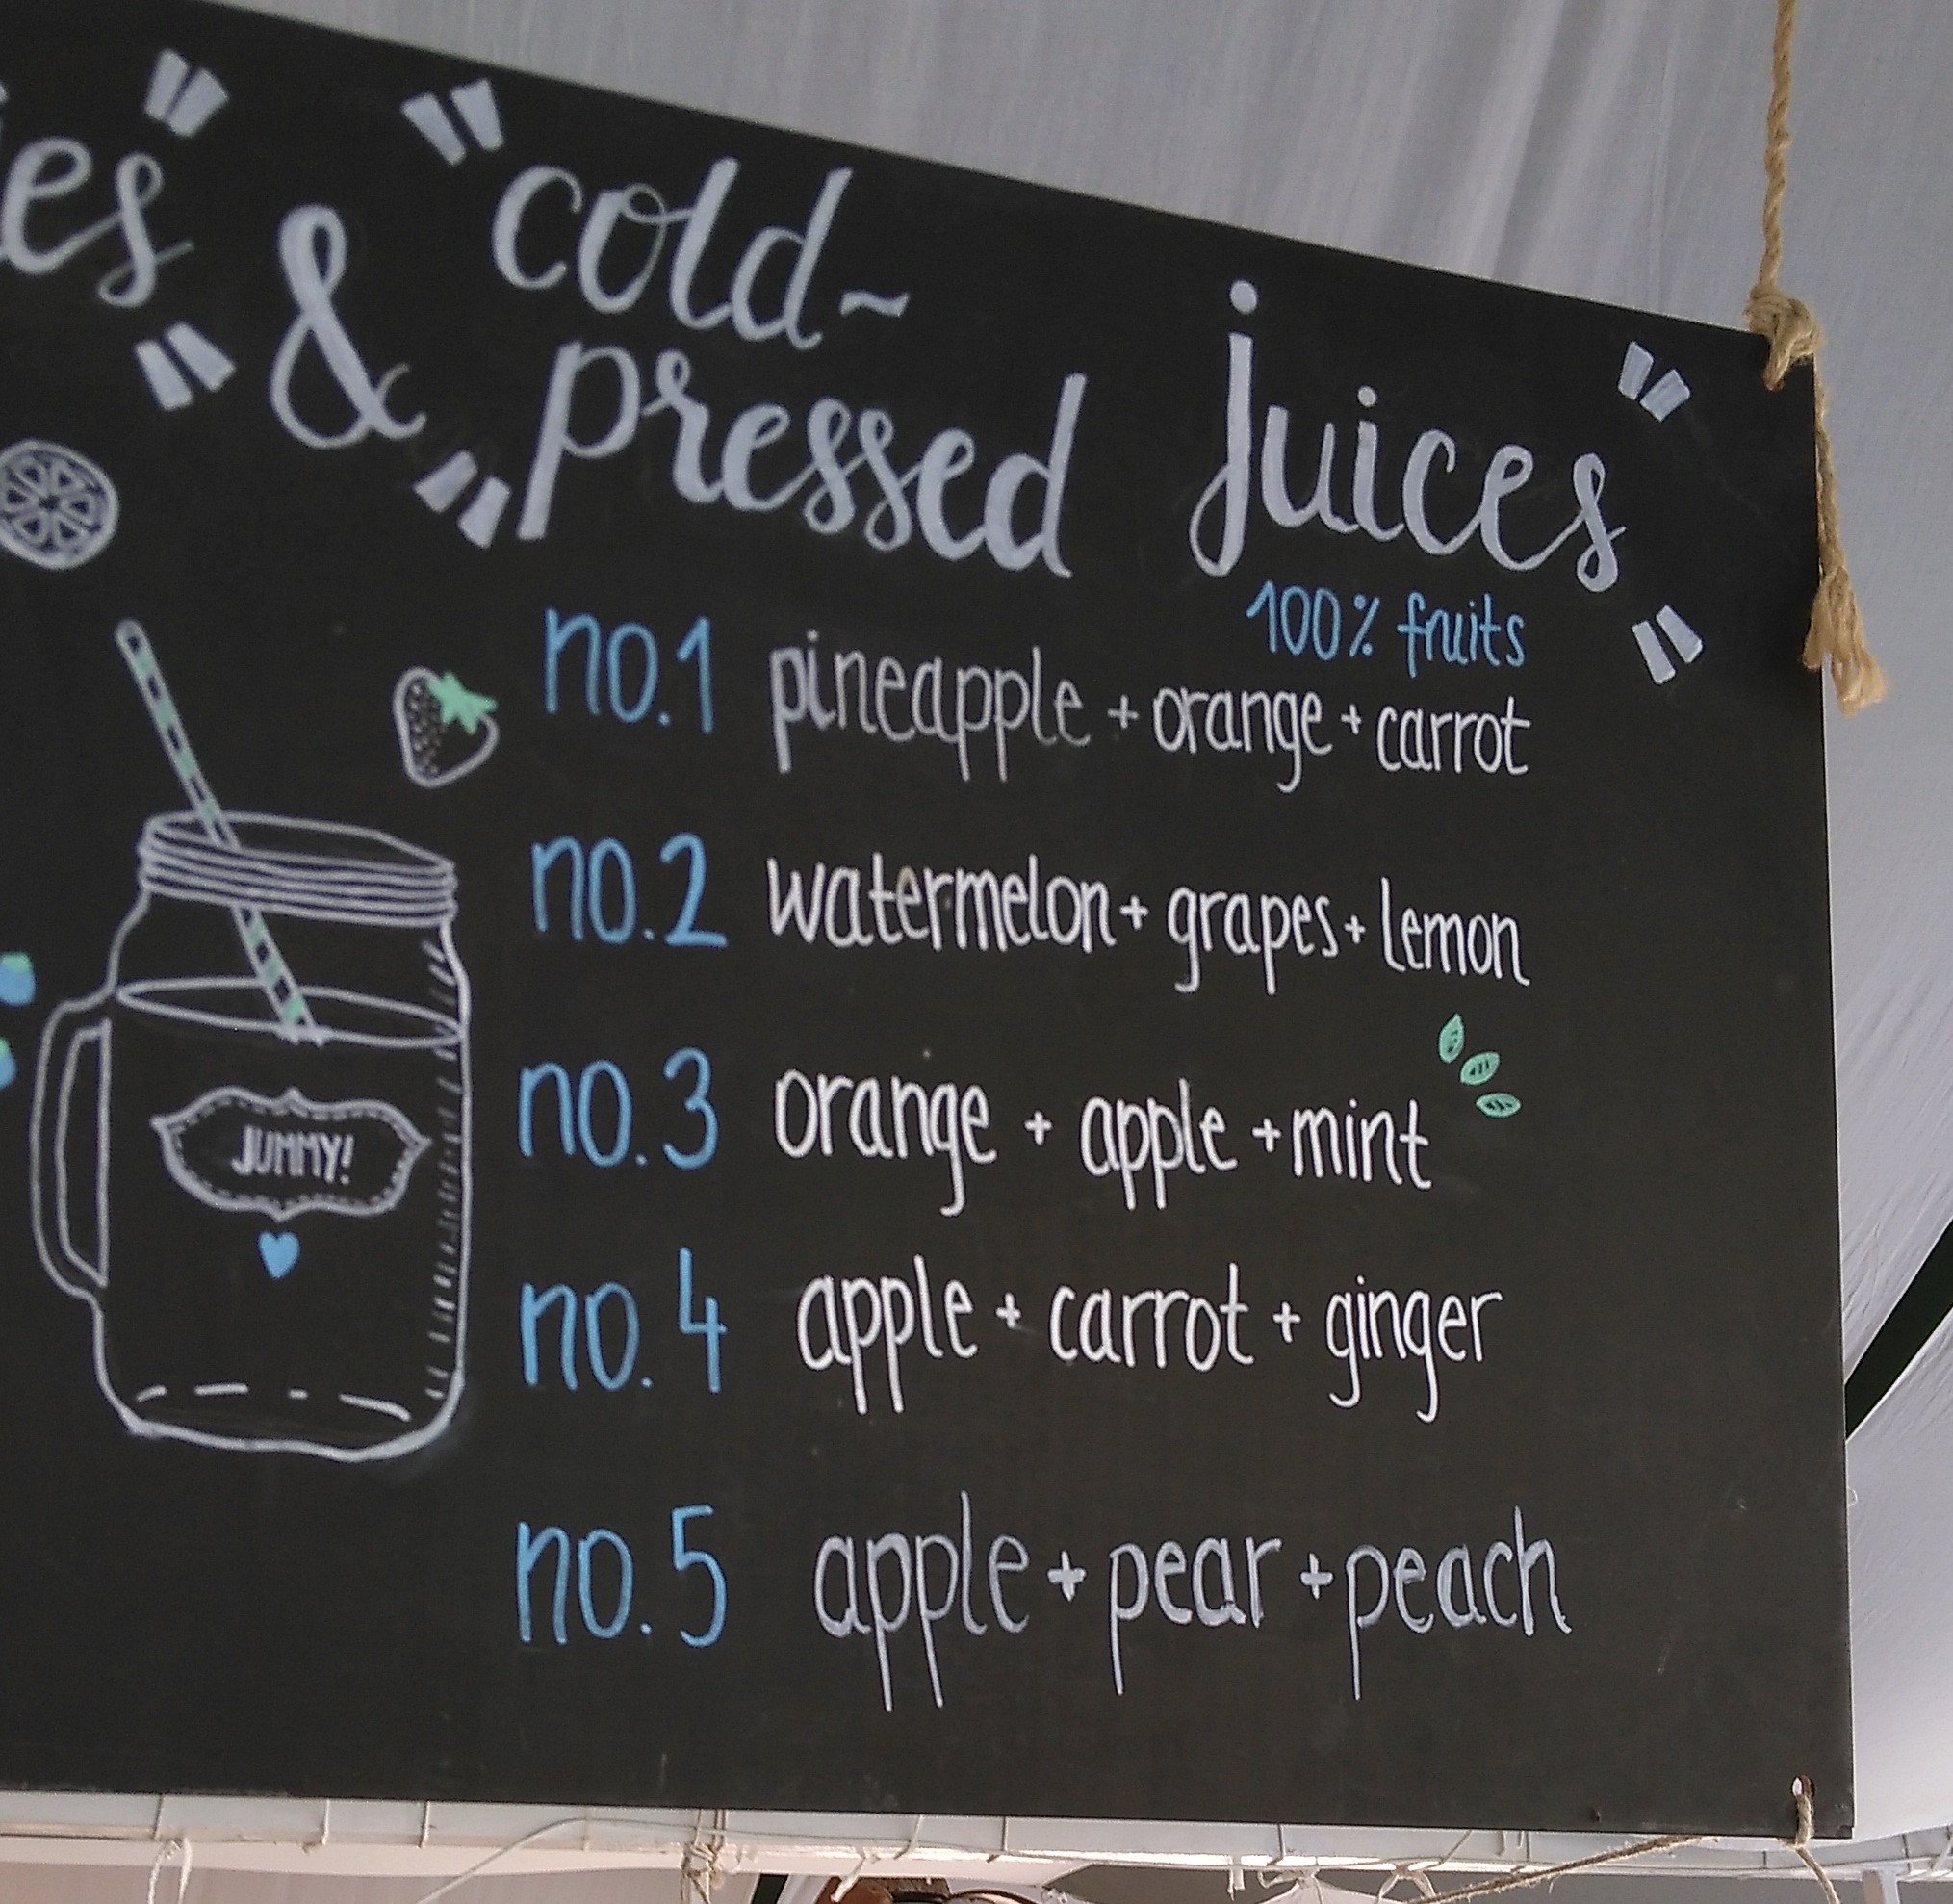 ies & cold-
pressed juices
100% fruits
no.1 pineapple + orange + carrot
no.2 watermelon + grapes + lemon
no.3 orange + apple + mint
no.4 apple + carrot + ginger
no.5 apple + pear + peach
JUMMY!